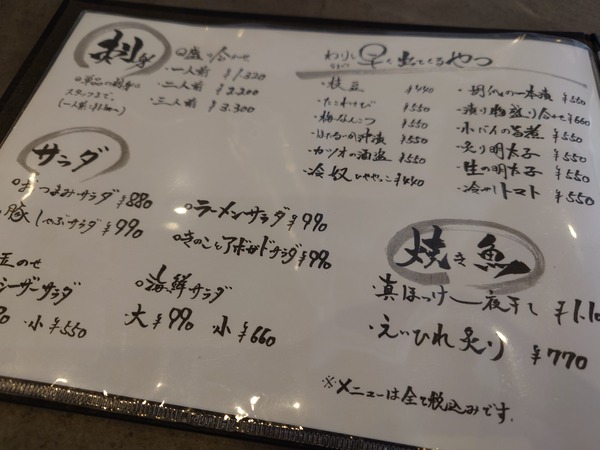 刺身
◎盛り合わせ
・一人前 ¥1.320
・二人前 ¥2.200
・三人前 ¥3.300
スタッフまで。
わりと早く出てくるやつ
・枝豆 ¥440
・たこわさび ¥550
・梅なんこつ ¥550
・ほたるいか沖漬 ¥550
・カツオの酒盗 ¥550
・冷奴 ¥440
・胡瓜の一本漬 ¥550
・漬け物盛り合わせ ¥660
¥550
・炙り明太子 ¥550
・生の明太子 ¥550
・冷やしトマト ¥550
サラダ
◎おつまみサラダ ¥880
豚しゃぶサラダ ¥990
◎ラーメンサラダ ¥990
◎きのことアボカドサラダ ¥990
玉のせ
シーザーサラダ
・小 ¥550
◎海鮮サラダ
大 ¥990 ・小 ¥660
焼き魚
・真ほっけ一夜干し
・えいひれ炙り ¥770
※メニューは全て税込みです。